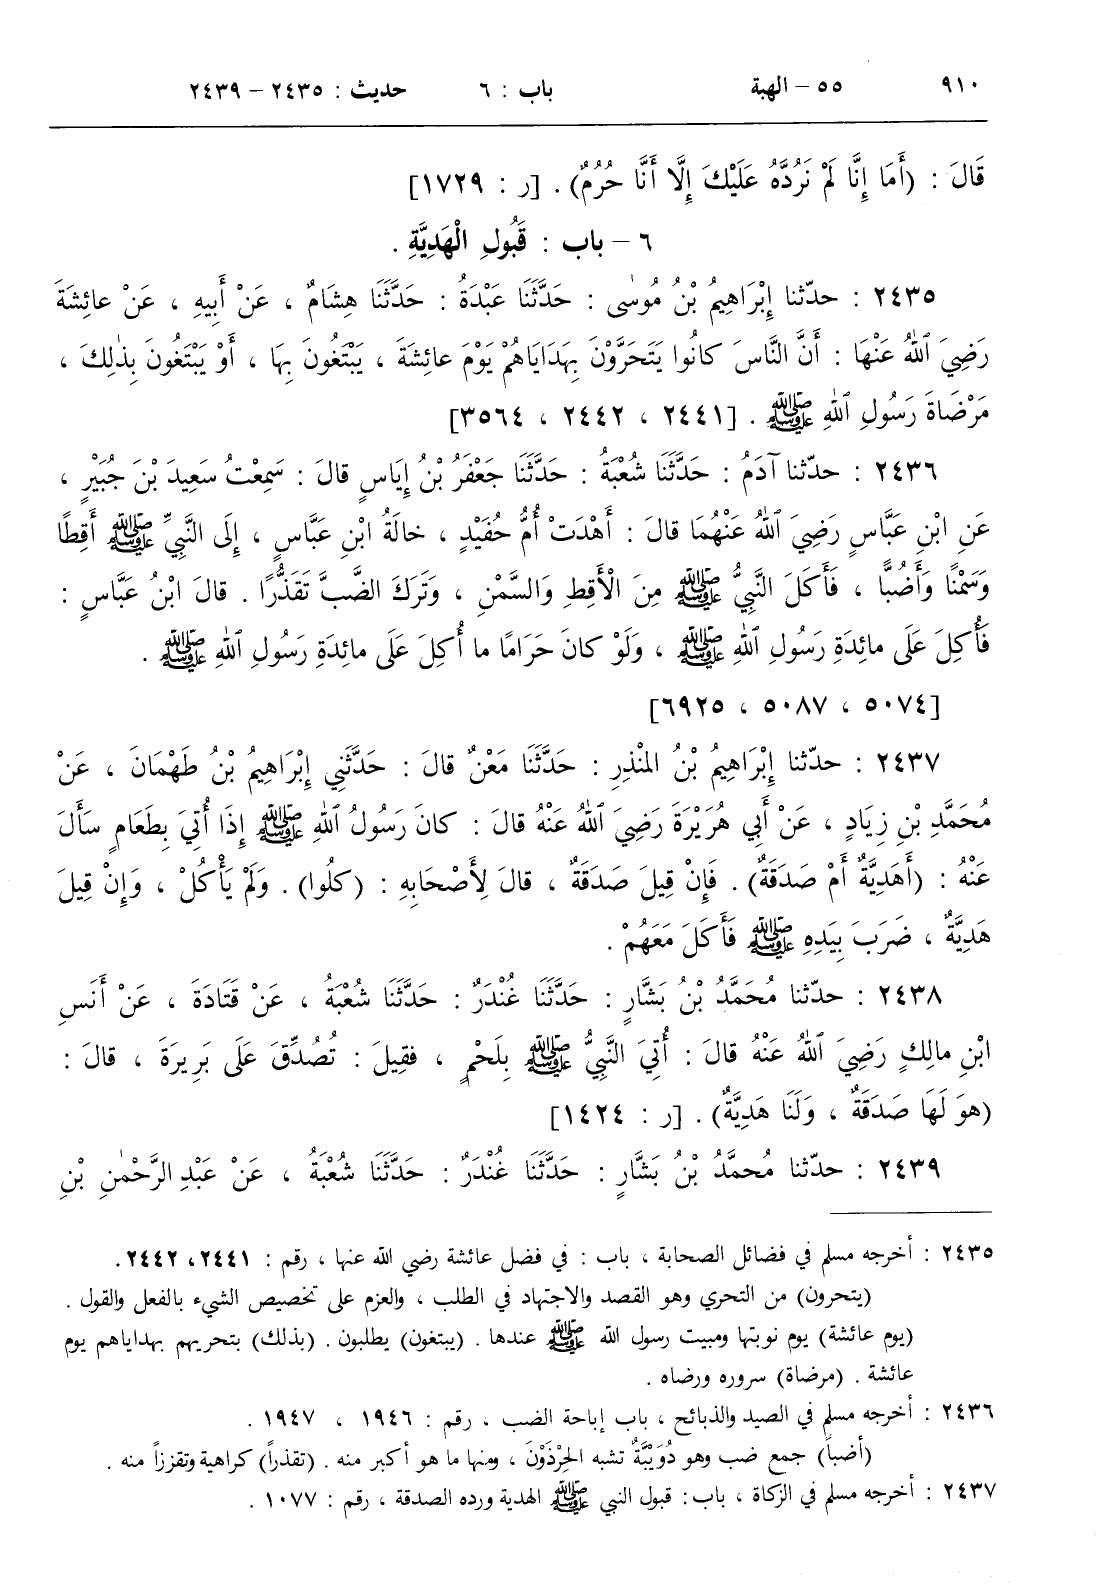 ٩١٠ ٥٥ – الهبة باب : ٦ حديث : ٢٤٣٥ – ٢٤٣٩
قَالَ : (أَمَا إِنَّا لَمْ نَرُدَّهُ عَلَيْكَ إِلَّا أَنَّا حُرُمٌ) . [ر : ١٧٢٩]
٦ – باب : قَبُولِ الْهَدِيَّةِ .
٢٤٣٥ : حدّثنا إِبْرَاهِيمُ بْنُ مُوسٰى : حَدَّثَنَا عَبْدَةُ : حَدَّثَنَا هِشَامٌ ، عَنْ أَبِيهِ ، عَنْ عائِشَةَ
رَضِيَ ٱللهُ عَنْهَا : أَنَّ النَّاسَ كانُوا يَتَحَرَّوْنَ بِهَدَايَاهُمْ يَوْمَ عائِشَةَ ، يَبْتَغُونَ بِهَا ، أَوْ يَبْتَغُونَ بِذٰلِكَ ،
مَرْضَاةَ رَسُولِ ٱللهِ ﷺ . [٢٤٤١ ، ٢٤٤٢ ، ٣٥٦٤]
٢٤٣٦ : حدّثنا آدَمُ : حَدَّثَنَا شُعْبَةُ : حَدَّثَنَا جَعْفَرُ بْنُ إِيَاسٍ قالَ : سَمِعْتُ سَعِيدَ بْنَ جُبَيْرٍ ،
عَنِ ابْنِ عَبَّاسٍ رَضِيَ ٱللهُ عَنْهُمَا قالَ : أَهْدَتْ أُمُّ حُفَيْدٍ ، خالَةُ ابْنِ عَبَّاسٍ ، إِلَى النَّبِيِّ ﷺ أَقِطًا
وَسَمْنًا وَأَضُبًّا ، فَأَكَلَ النَّبِيُّ ﷺ مِنَ الْأَقِطِ وَالسَّمْنِ ، وَتَرَكَ الضَّبَّ تَقَذُّرًا . قالَ ابْنُ عَبَّاسٍ :
فَأُكِلَ عَلَى مائِدَةِ رَسُولِ ٱللهِ ﷺ ، وَلَوْ كانَ حَرَامًا ما أُكِلَ عَلَى مائِدَةِ رَسُولِ ٱللهِ ﷺ .
[٥٠٧٤ ، ٥٠٨٧ ، ٦٩٢٥]
٢٤٣٧ : حدّثنا إِبْرَاهِيمُ بْنُ المُنْذِرِ : حَدَّثَنَا مَعْنٌ قالَ : حَدَّثَنِي إِبْرَاهِيمُ بْنُ طَهْمَانَ ، عَنْ
مُحَمَّدِ بْنِ زِيَادٍ ، عَنْ أَبِي هُرَيْرَةَ رَضِيَ ٱللهُ عَنْهُ قالَ : كانَ رَسُولُ ٱللهِ ﷺ إِذَا أُتِيَ بِطَعَامٍ سَأَلَ
عَنْهُ : (أَهَدِيَّةٌ أَمْ صَدَقَةٌ) . فَإِنْ قِيلَ صَدَقَةٌ ، قالَ لِأَصْحَابِهِ : (كلُوا) . وَلَمْ يَأْكُلْ ، وَإِنْ قِيلَ
هَدِيَّةٌ ، ضَرَبَ بِيَدِهِ ﷺ فَأَكَلَ مَعَهُمْ .
٢٤٣٨ : حدّثنا مُحَمَّدُ بْنُ بَشَّارٍ : حَدَّثَنَا غُنْدَرٌ : حَدَّثَنَا شُعْبَةُ ، عَنْ قَتَادَةَ ، عَنْ أَنَسِ
ابْنِ مالِكٍ رَضِيَ ٱللهُ عَنْهُ قالَ : أُتِيَ النَّبِيُّ ﷺ بِلَحْمٍ ، فَقِيلَ : تُصُدِّقَ عَلَى بَرِيرَةَ ، قالَ :
(هوَ لَهَا صَدَقَةٌ ، وَلَنَا هَدِيَّةٌ) . [ر : ١٤٢٤]
٢٤٣٩ : حدّثنا مُحمَّدُ بْنُ بَشَّارٍ : حَدَّثَنَا غُنْدَرٌ : حَدَّثَنَا شُعْبَةُ ، عَنْ عَبْدِ الرَّحْمٰنِ بْنِ
٢٤٣٥ : أخرجه مسلم في فضائل الصحابة ، باب : في فضل عائشة رضي الله عنها ، رقم : ٢٤٤١، ٢٤٤٢ .
(يتحرون) من التحري وهو القصد والاجتهاد في الطلب ، والعزم على تخصيص الشيء بالفعل والقول .
(يوم عائشة) يوم نوبتها ومبيت رسول الله ﷺ عندها . (يبتغون) يطلبون . (بذلك) بتحريهم بهداياهم يوم
عائشة . (مرضاة) سروره ورضاه .
٢٤٣٦ : أخرجه مسلم في الصيد والذبائح ، باب إباحة الضب ، رقم : ١٩٤٦ ، ١٩٤٧ .
(أضباً) جمع ضب وهو دُوَيْبَّةٌ تشبه الحِرْذَوْنَ ، ومنها ما هو أكبر منه . (تقذراً) كراهية وتقززاً منه .
٢٤٣٧ : أخرجه مسلم في الزكاة ، باب : قبول النبي ﷺ الهدية ورده الصدقة ، رقم : ١٠٧٧ .